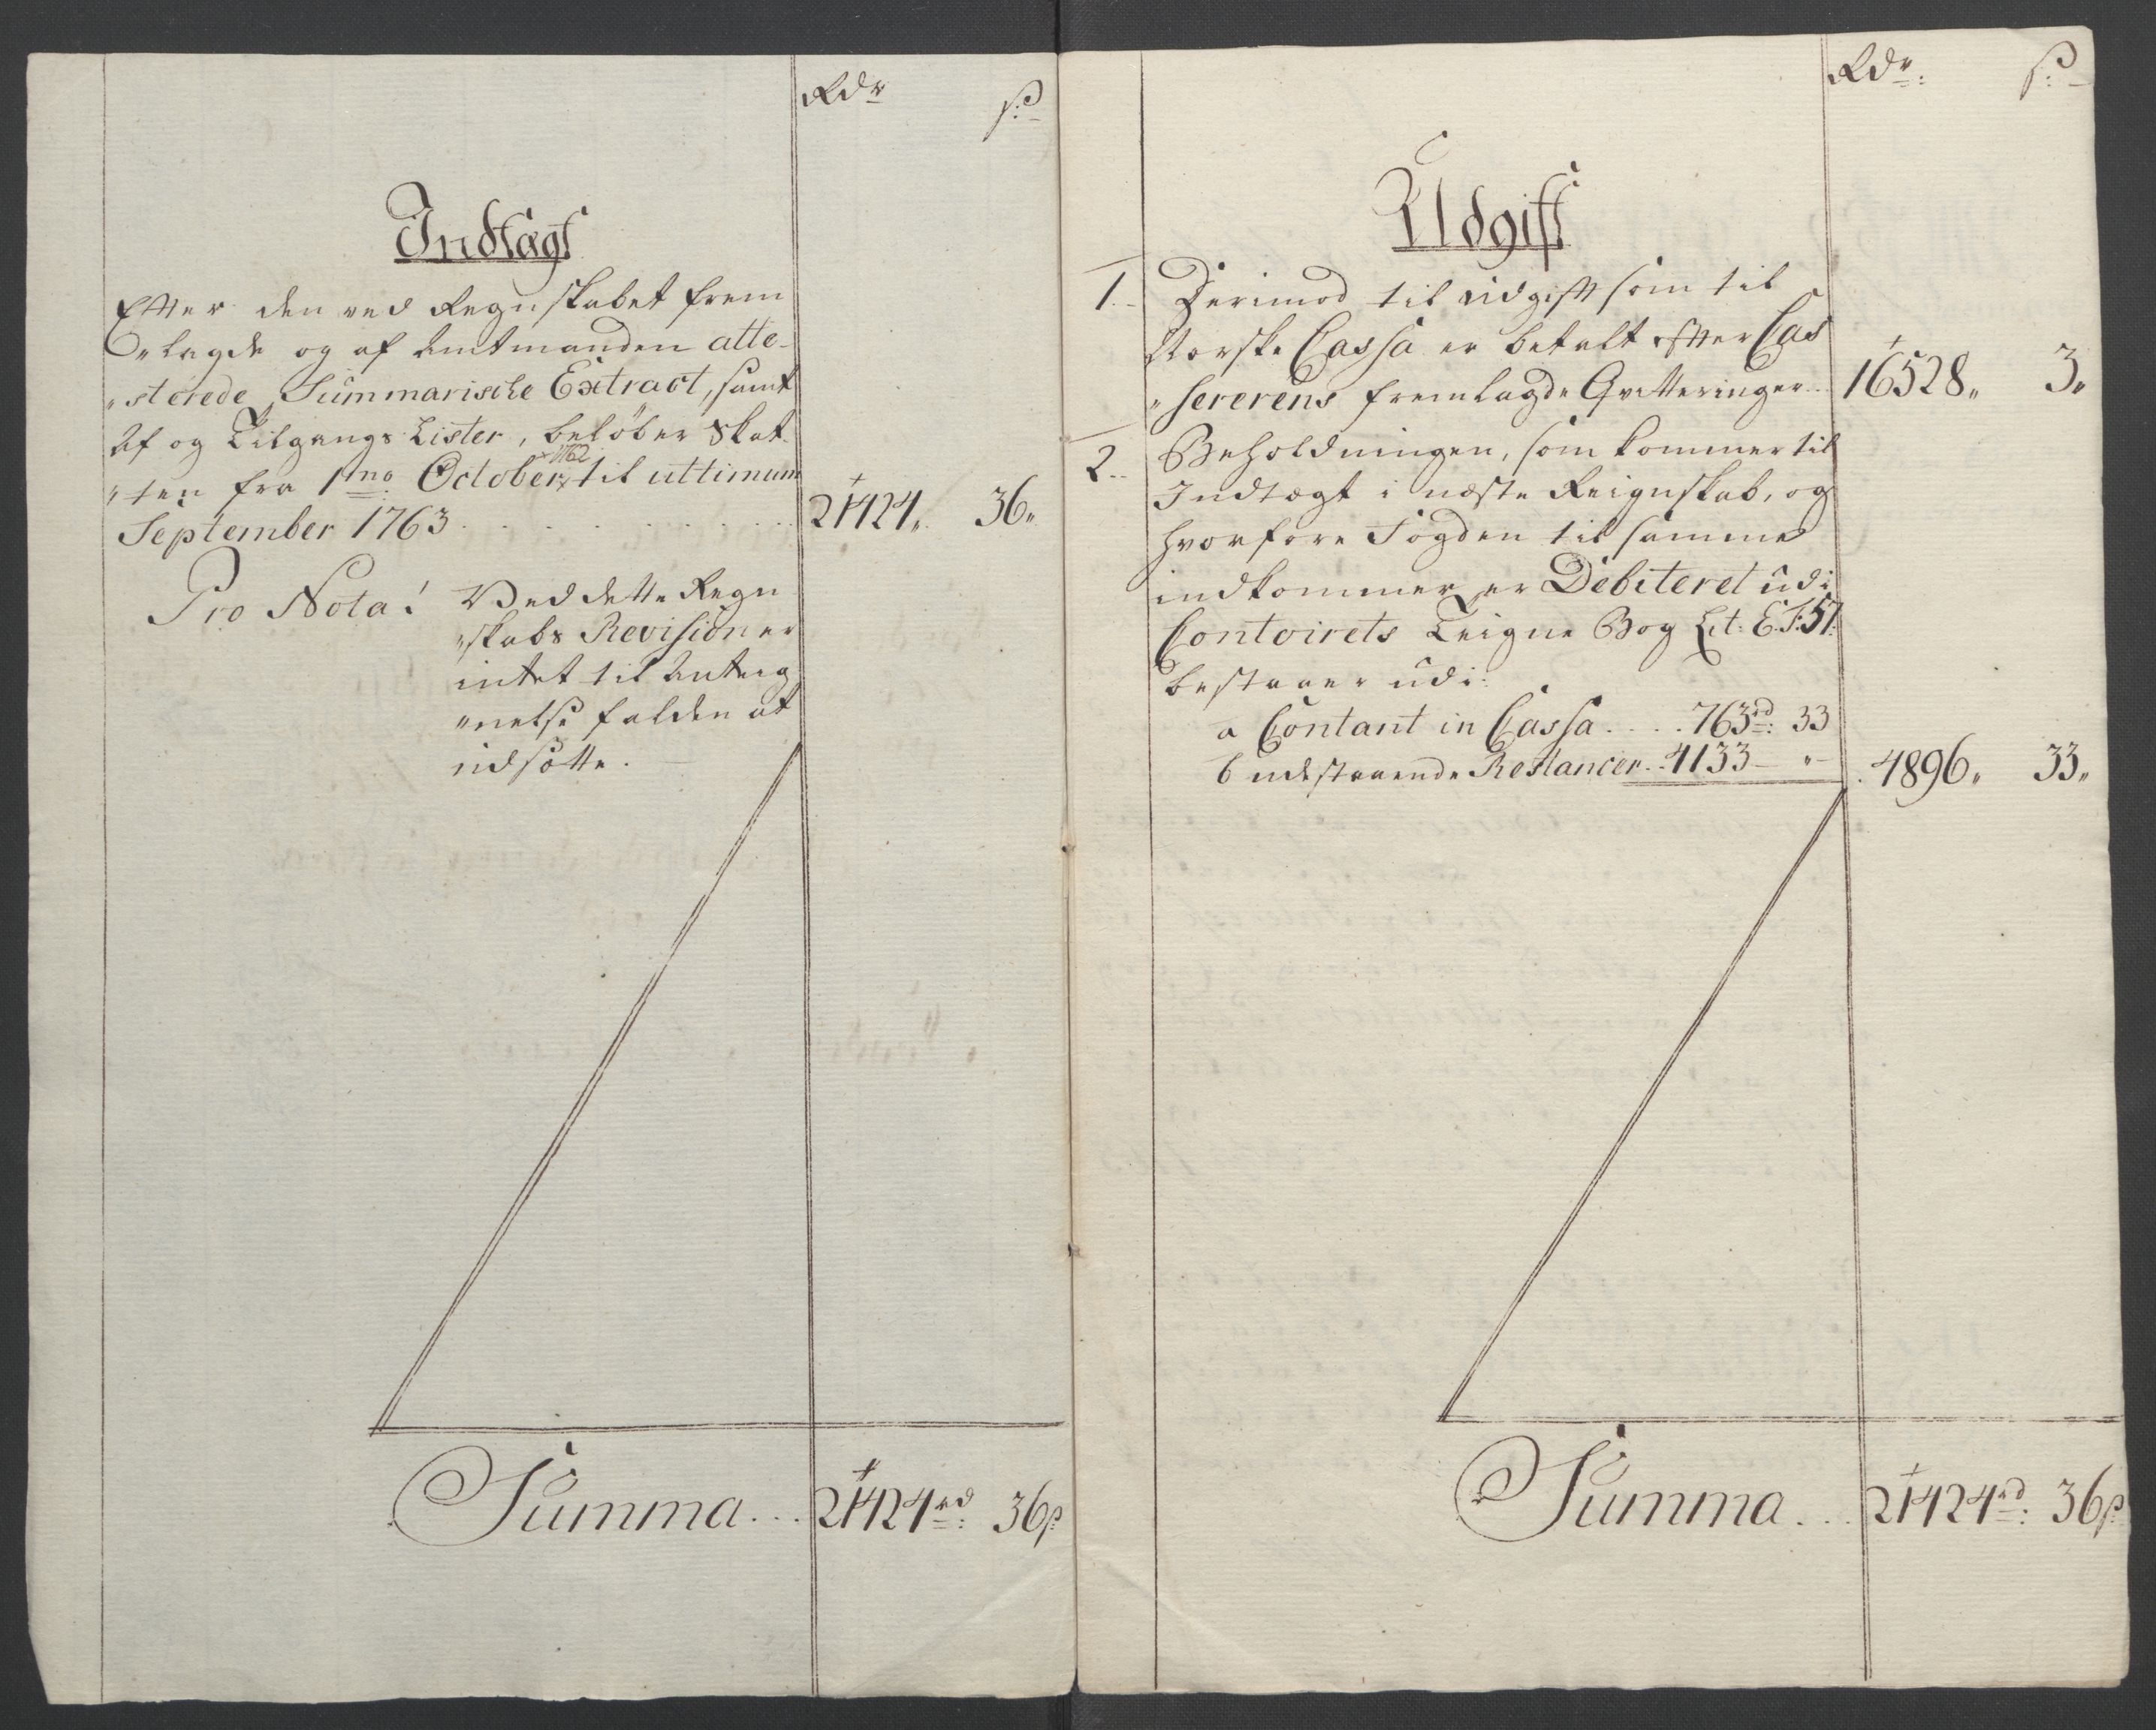 Rdr ß
Indtægt
Efter den ved Regnskabet frem
„lagde og af Amtmanden atte-
„sterede Summarische Extract, samt
Af og Tilgangs Lister, beløber Skat
1762
„ten fra 1mo October til ultimum
September 1763 . . . . . . . . 21424„ 36„
Pro Nota! Ved dette Regn
„skabs Revision er
intet til Anteig
„nelse falden at
udsætte.
Summa . . . 21424rd: 36ß
Rdr: ß:
Udgift
1. Derimod til udgift som til
Norske Cassa er betalt efter Cas
„sererens fremlagde Qvitteringer . . 16528„ 3„
2. Beholdningen, som kommer til
Indtægt i næste Reignskab, og
hvorfore Fogden til samme
indkommer er Debiteret udi
Contoirets Teigne Bog Lit: E. F: 57.
bestaaer udi:
a Contant in Cassa . . . . 763rd: 33
b udestaaende Restancer . . 4133 „ 4896„ 33„
Summa . . . 21424rd: 36ß